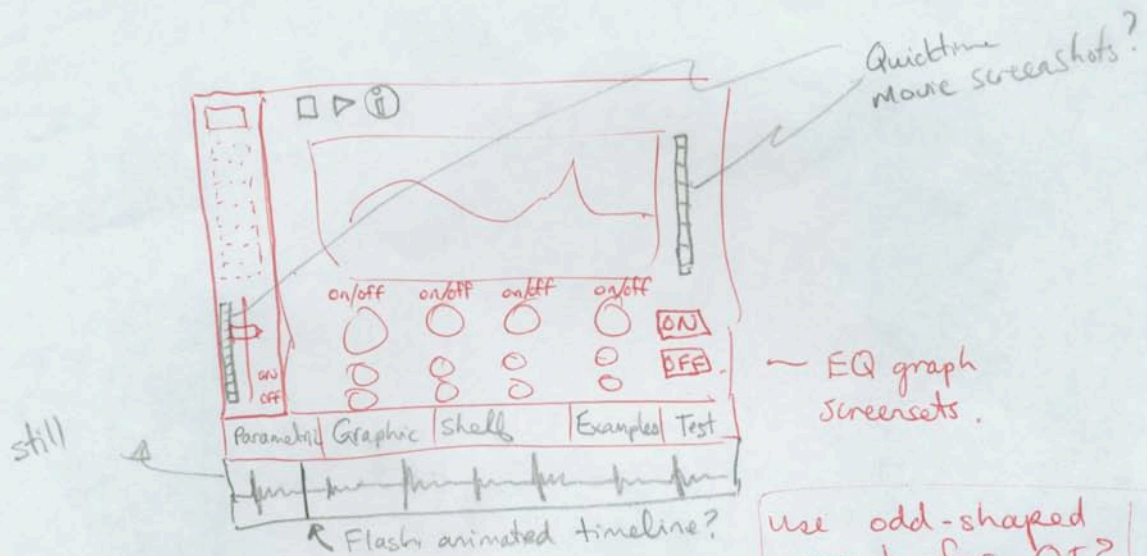 Quicktime
Movie screenshots?
i
on/off on/off on/off on/off
ON
OFF
ON
OFF
~ EQ graph
screensets.
Parametric Graphic Shelf Examples Test
still
Flash animated timeline?
Use odd-shaped